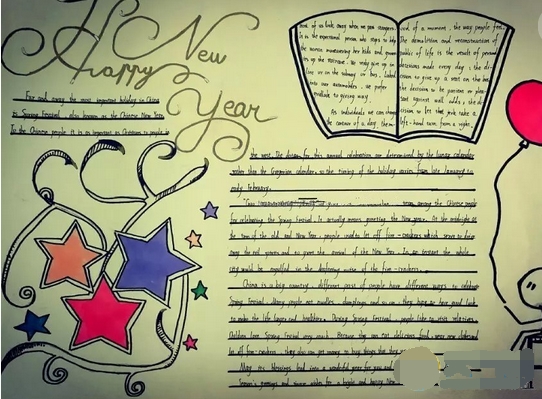 Happy New
Year
Far and away the most important holiday in China
is Spring Festival, also known as the Chinese New Year.
To the Chinese people it is as important as Christmas to people in
the West. The dates for this annual celebration are determined by the lunar calendar
rather than the Gregorian calendar, so the timing of the holiday varies from late January to
early February.
among the Chinese people
for celebrating the Spring Festival. It actually means greeting the New year. At the midnight at
the turn of the old and New Year, people used to let off fire-crackers which serve to drive
away the evil spirits and to greet the arrival of the New Year. In an instant the whole
city would be engulfed in the deafening noise of the fire-crackers.
China is a big country, different cities of people have different ways to celebrate
Spring Festival. Many people eat noodles, dumplings and so on, they hope to have good luck
to make the life longer and healthier. During Spring Festival, people like to visit relatives.
Children love Spring Festival very much. Because they can eat delicious food, wear new clothes and
let off fire-crackers. they also can get money to buy things that they
May the blessings lead into a wonderful year for you and
season's greetings and sincere wishes for a bright and happy New
kind of us look away when we pass strangers.
It is the exceptional person who stops to help
the woman maneuvering her kids and groceries
up the staircase. We rarely give up
our on the subway or bus. Locked
into our automobiles, we prefer
gridlock to giving way.
As individuals we can change
the contour of a day, the
end of a moment, the way people feel.
The demolition and reconstruction of
public of life is the result of personal
decisions made every day: the decision
to give up a seat on the bus;
the decision to be patient or pleasant
against all odds; the decision
to let that jerk take a
left-hand turn from a right